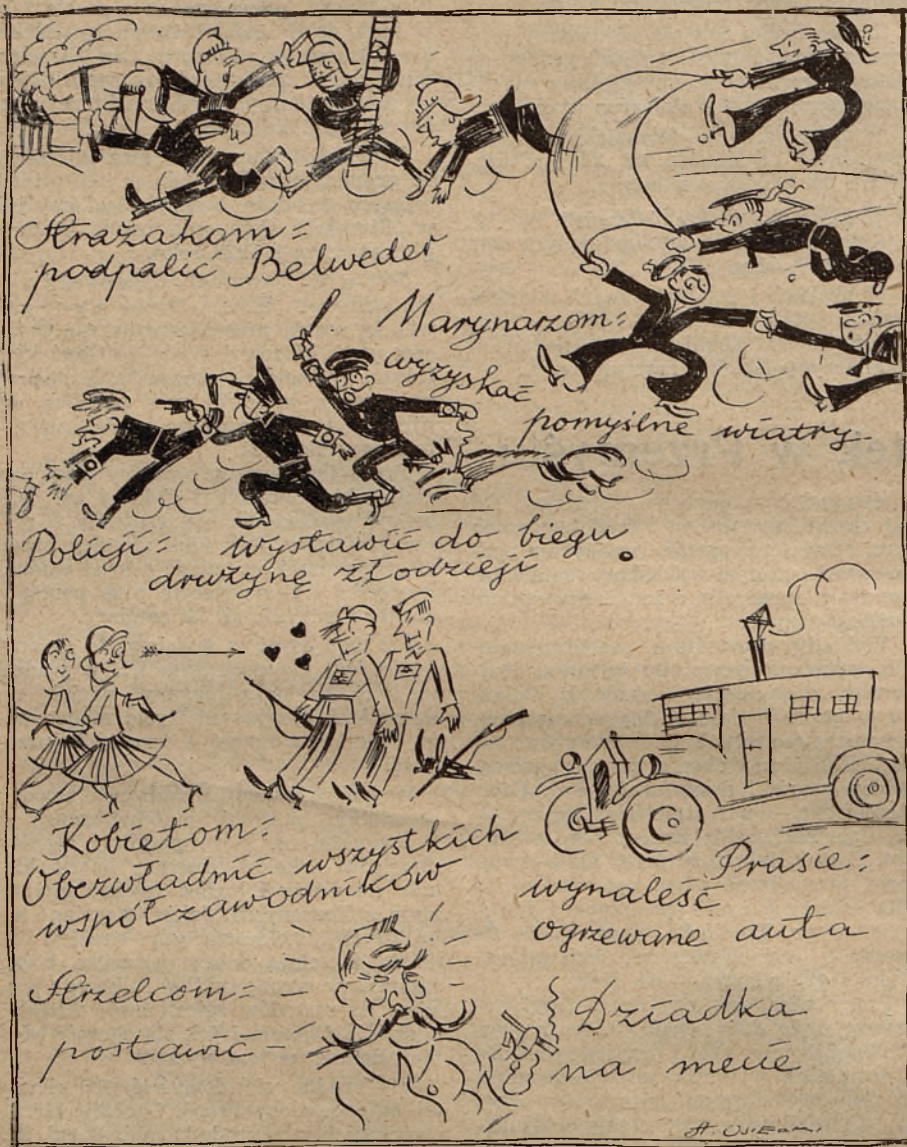 Strażakom =
podpalić Belweder
Marynarzom =
wyzyskać
pomyślne wiatry
Policji = wystawić do biegu
drużynę złodzieji
Kobietom:
Obezwładnić wszystkich
współzawodników
Prasie:
wynaleść
ogrzewane auta
Strzelcom =
postawić -
Dziadka
na mecie